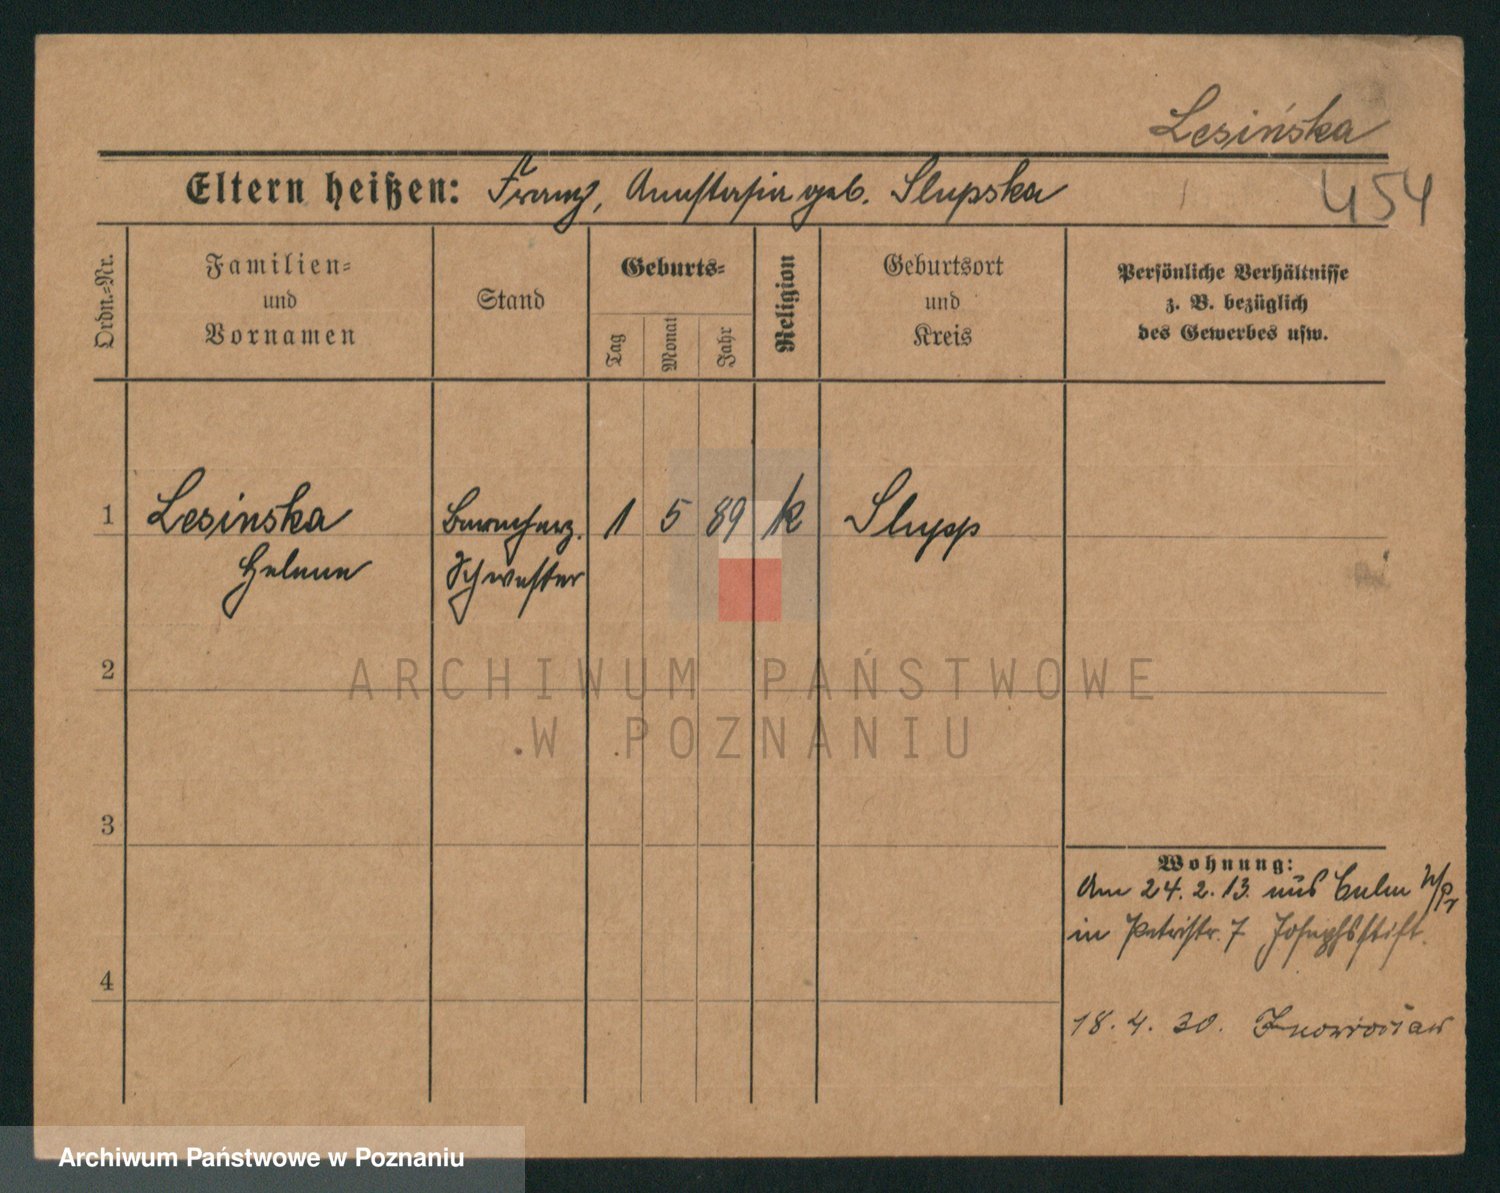 Lesińska
Eltern heißen: Franz, Anastasia geb. Slupska
454
Ordn.-Nr.
Familien-
und
Vornamen
Stand
Geburts-
Tag
Monat
Jahr
Religion
Geburtsort
und
Kreis
Persönliche Verhältnisse
z. B. bezüglich
des Gewerbes usw.
1
Lesinska
Helene
Barmherz.
Schwester
1 5 89 k
Slupp
2
ARCHIWUM PAŃSTWOWE
W POZNANIU
3
Wohnung:
Am 24.2.13. aus Culm W/Pr
in Petristr. 7 Josephsstift.
4
18.4.30. Inowrocław
Archiwum Państwowe w Poznaniu